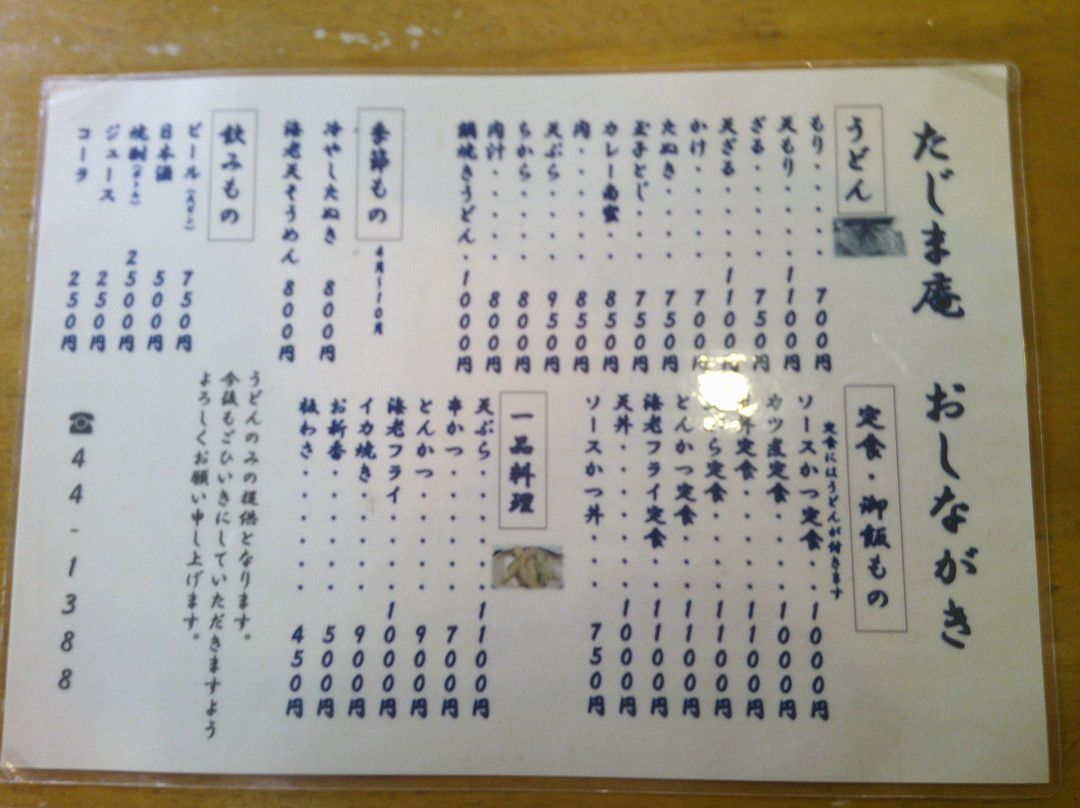 たじま庵 おしながき
うどん
もり・・・・・700円
天もり・・・1100円
ざる・・・・・750円
天ざる・・・1100円
かけ・・・・・700円
たぬき・・・・750円
玉子とじ・・・750円
カレー南蛮・・850円
肉・・・・・・850円
天ぷら・・・・950円
ちから・・・・800円
肉汁・・・・・800円
鍋焼きうどん・1000円
季節もの 4月~10月
冷やしたぬき 800円
海老天そうめん 800円
飲みもの
ビール(大ビン) 750円
日本酒 500円
焼酎(ボトル) 2500円
ジュース 250円
コーラ 250円
定食・御飯もの
定食にはうどんが付きます
ソースかつ定食・・1000円
カツ煮定食・・・1000円
丼定食・・・・1100円
ら定食・・・・1100円
とんかつ定食・・・1100円
海老フライ定食・・1100円
天丼・・・・・・1000円
ソースかつ丼・・・750円
一品料理
天ぷら・・・・・1100円
串かつ・・・・・700円
とんかつ・・・・900円
海老フライ・・・1000円
イカ焼き・・・・900円
お新香・・・・・500円
板わさ・・・・・450円
うどんのみの提供となります。
今後もごひいきにしていただきますよう
よろしくお願い申し上げます。
☎44-1388